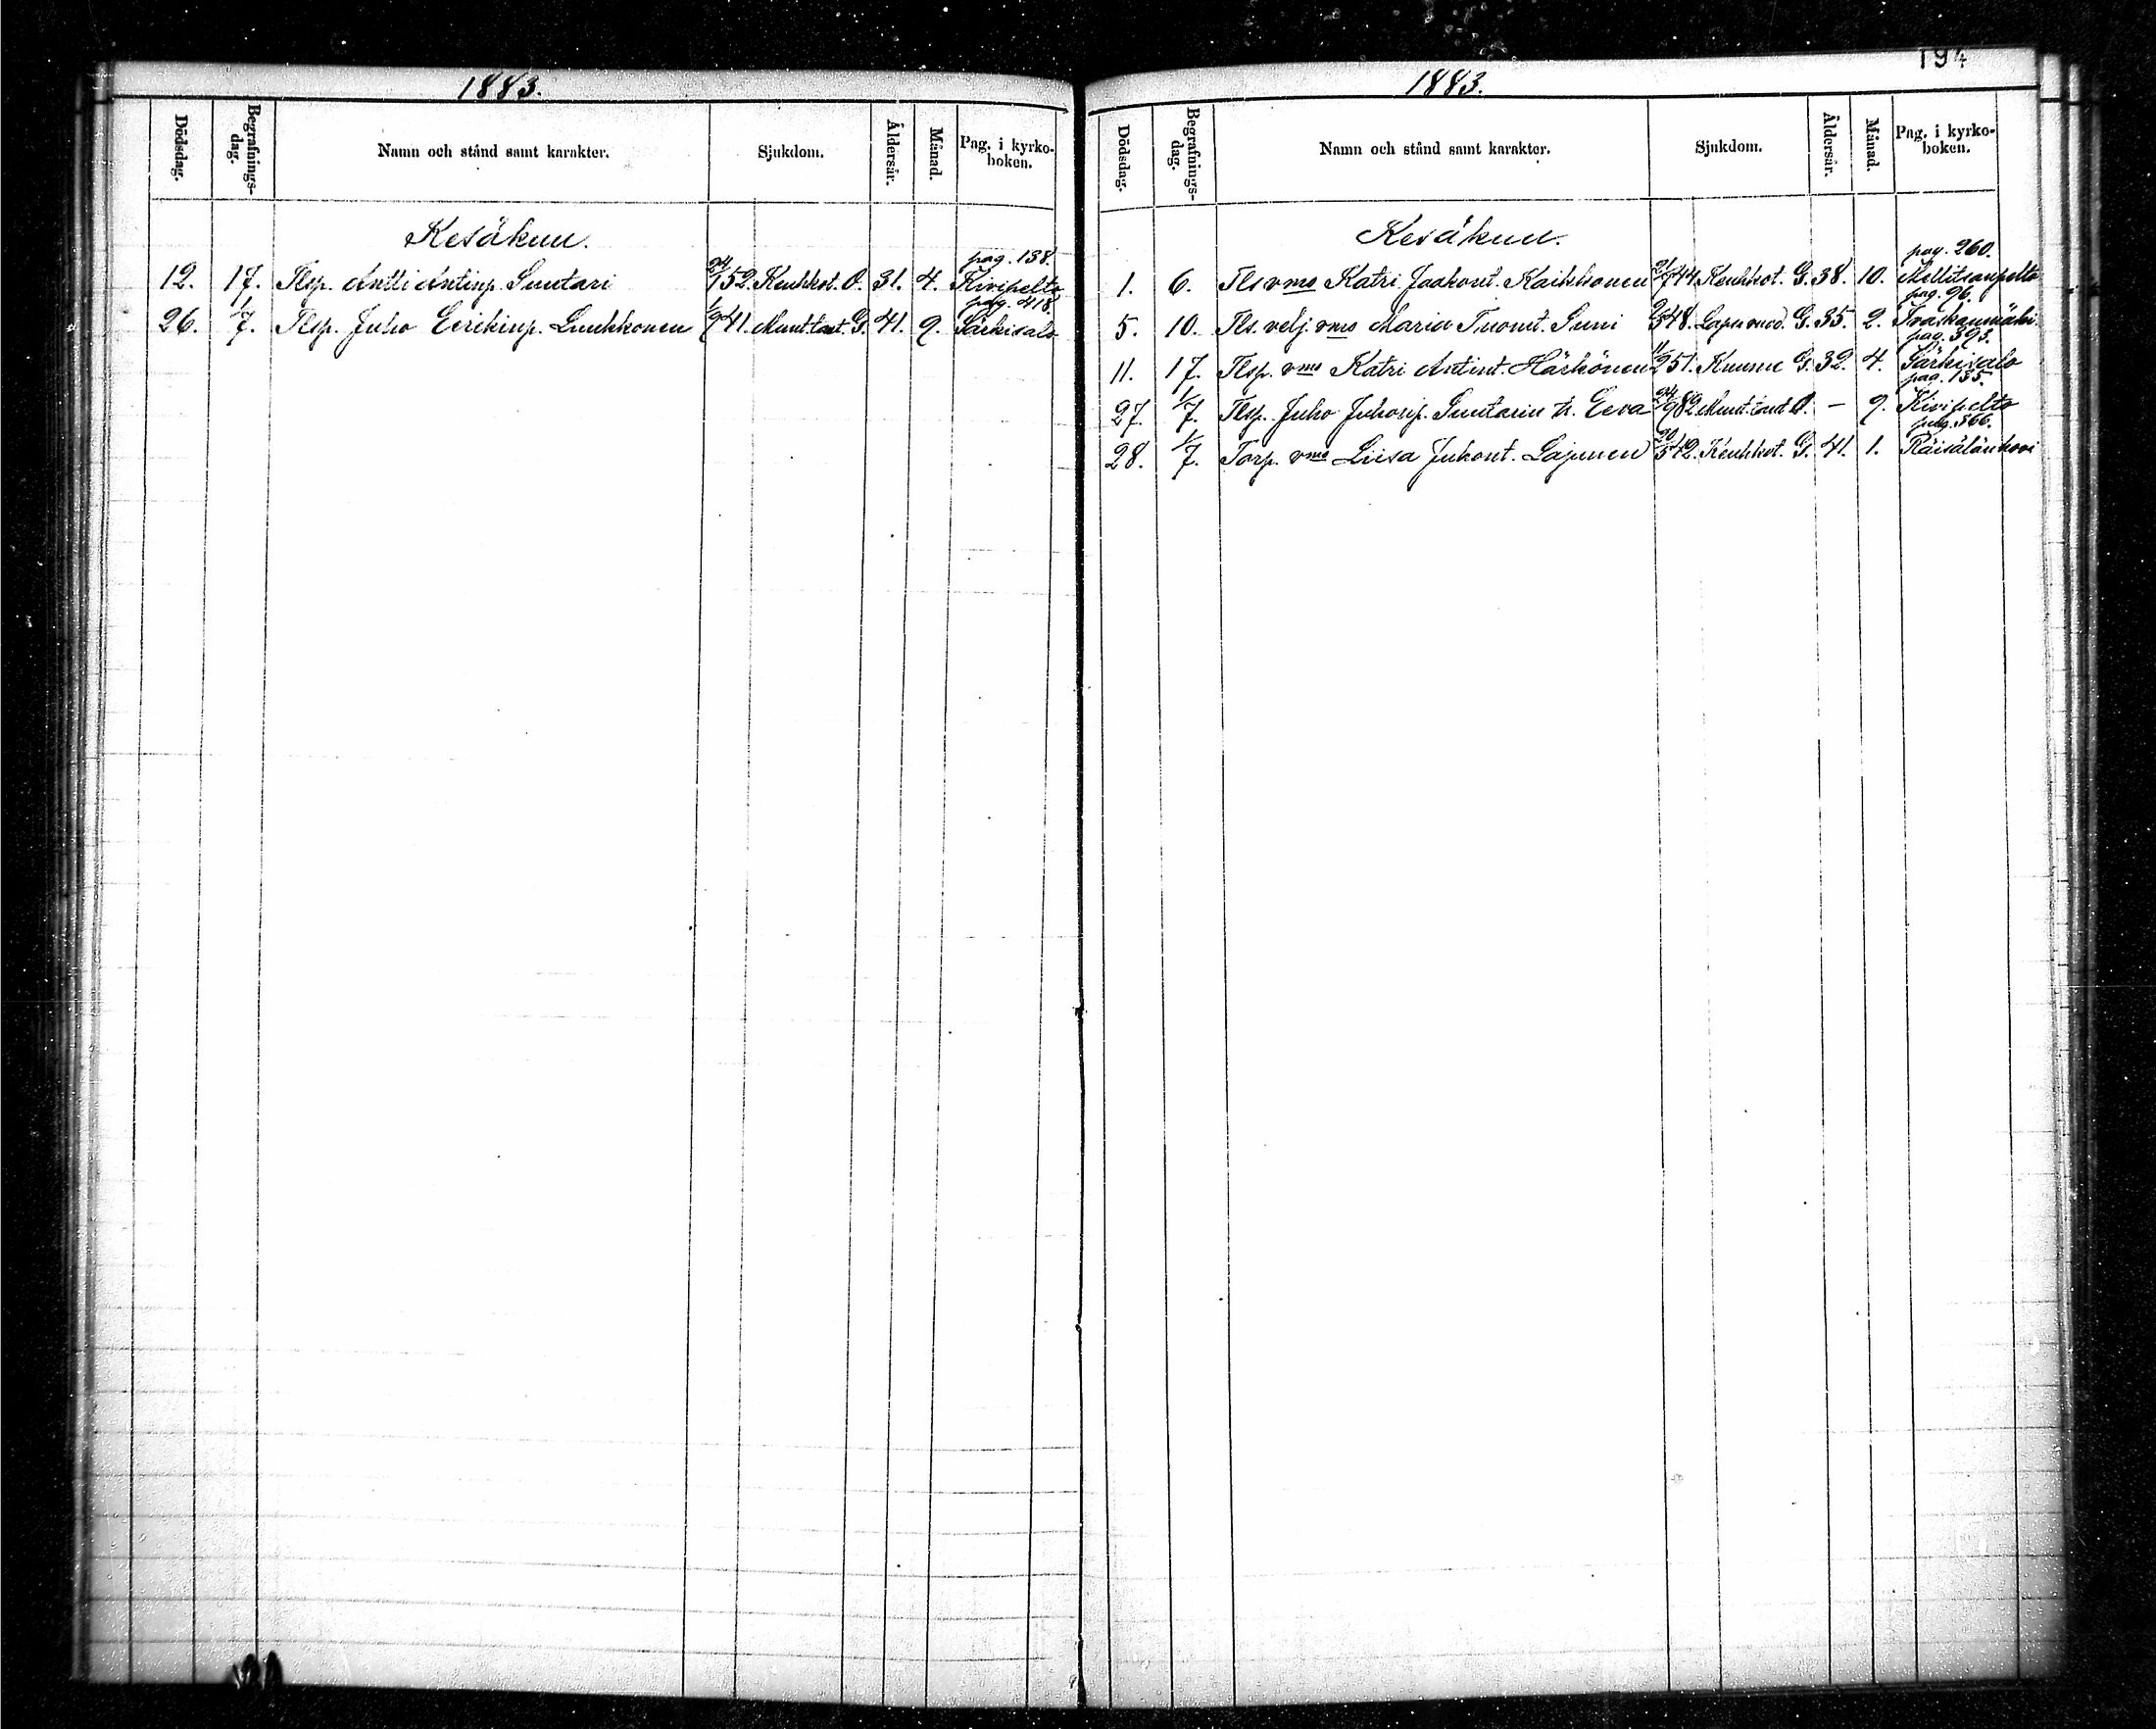 194
1883.
Dödsdag. Begrafnings-dag. Namn och stånd samt karakter. Sjukdom. Åldersår. Månad. Pag. i kyrko-boken.
Kesäkuu.
pag. 138.
12. 17. Tlsp. Antti Antinp. Suutari 24/1 52. Keuhkot. O. 31. 4. Kivipelto
pag. 418.
26. 1/7. Tlsp. Juho Eerikinp. Luukkonen 1/9 41. Muut. taut. G. 41. 9. Särkisalo
1883.
Dödsdag. Begrafnings-dag. Namn och stånd samt karakter. Sjukdom. Åldersår. Månad. Pag. i kyrko-boken.
Kesäkuu.
pag. 260.
1. 6. Tls vmo Katri Jaakont. Kaikkonen 44. Keuhkot. G. 38. 10.
pag. 96.
5. 10. Tls. velj. vmo Maria Tuomt. Suni 48. Lapsivuod. G. 35. 2.
pag. 393.
11. 17. Tlsp. vmo Katri Antint. Härkönen 11/2 51. Kuume G. 32. 4. Särkisalo
pag. 135.
27. 1/7. Tlsp. Juho Juhonp. Suutarin t. Eeva 24/9 82. Muut. taut. O. — 9. Kivipelto
pag. 366.
28. 1/7. Torp. vmo Liisa Juhont. Lajunen 20/5 42. Keuhkot. G. 41. 1. Räisälänhovi